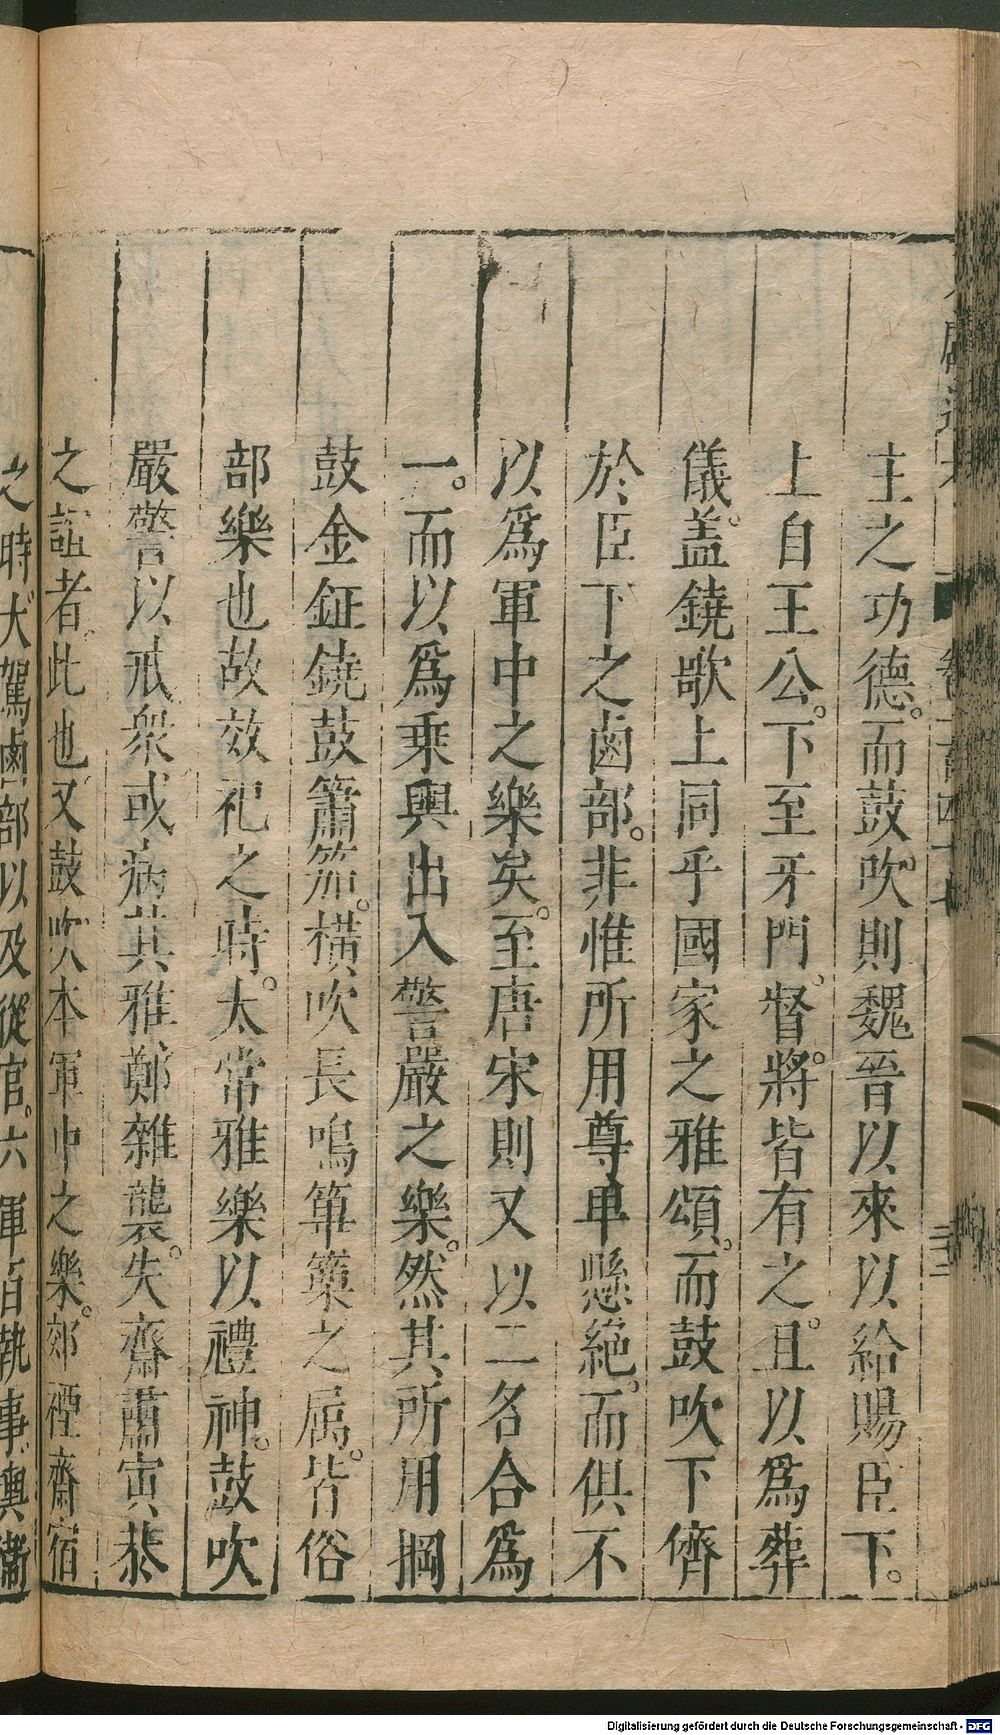 主之功德。而鼓吹則魏晉以來以給賜臣下。
上自王公。下至牙門。督將。皆有之。且以爲葬
儀。盖鐃歌上同乎國家之雅頌。而鼓吹下儕
於臣下之鹵部。非惟所用尊卑懸絕。而俱不
以爲軍中之樂矣。至唐宋則又以二名合爲
一。而以爲乗輿出入警嚴之樂。然其所用掆
鼓金鉦鐃鼓簫笳。橫吹長鳴篳篥之属。皆俗
部樂也故效祀之時。太常雅樂以禮神。鼓吹
嚴警以戒衆或病其雅鄭雜襲。失齋肅寅恭
之誼者。此也。又鼓吹本軍中之樂。郊禋齋宿
之時大駕鹵部以及從官。六軍百執事。輿衛
Digitalisierung gefördert durch die Deutsche Forschungsgemeinschaft - DFG